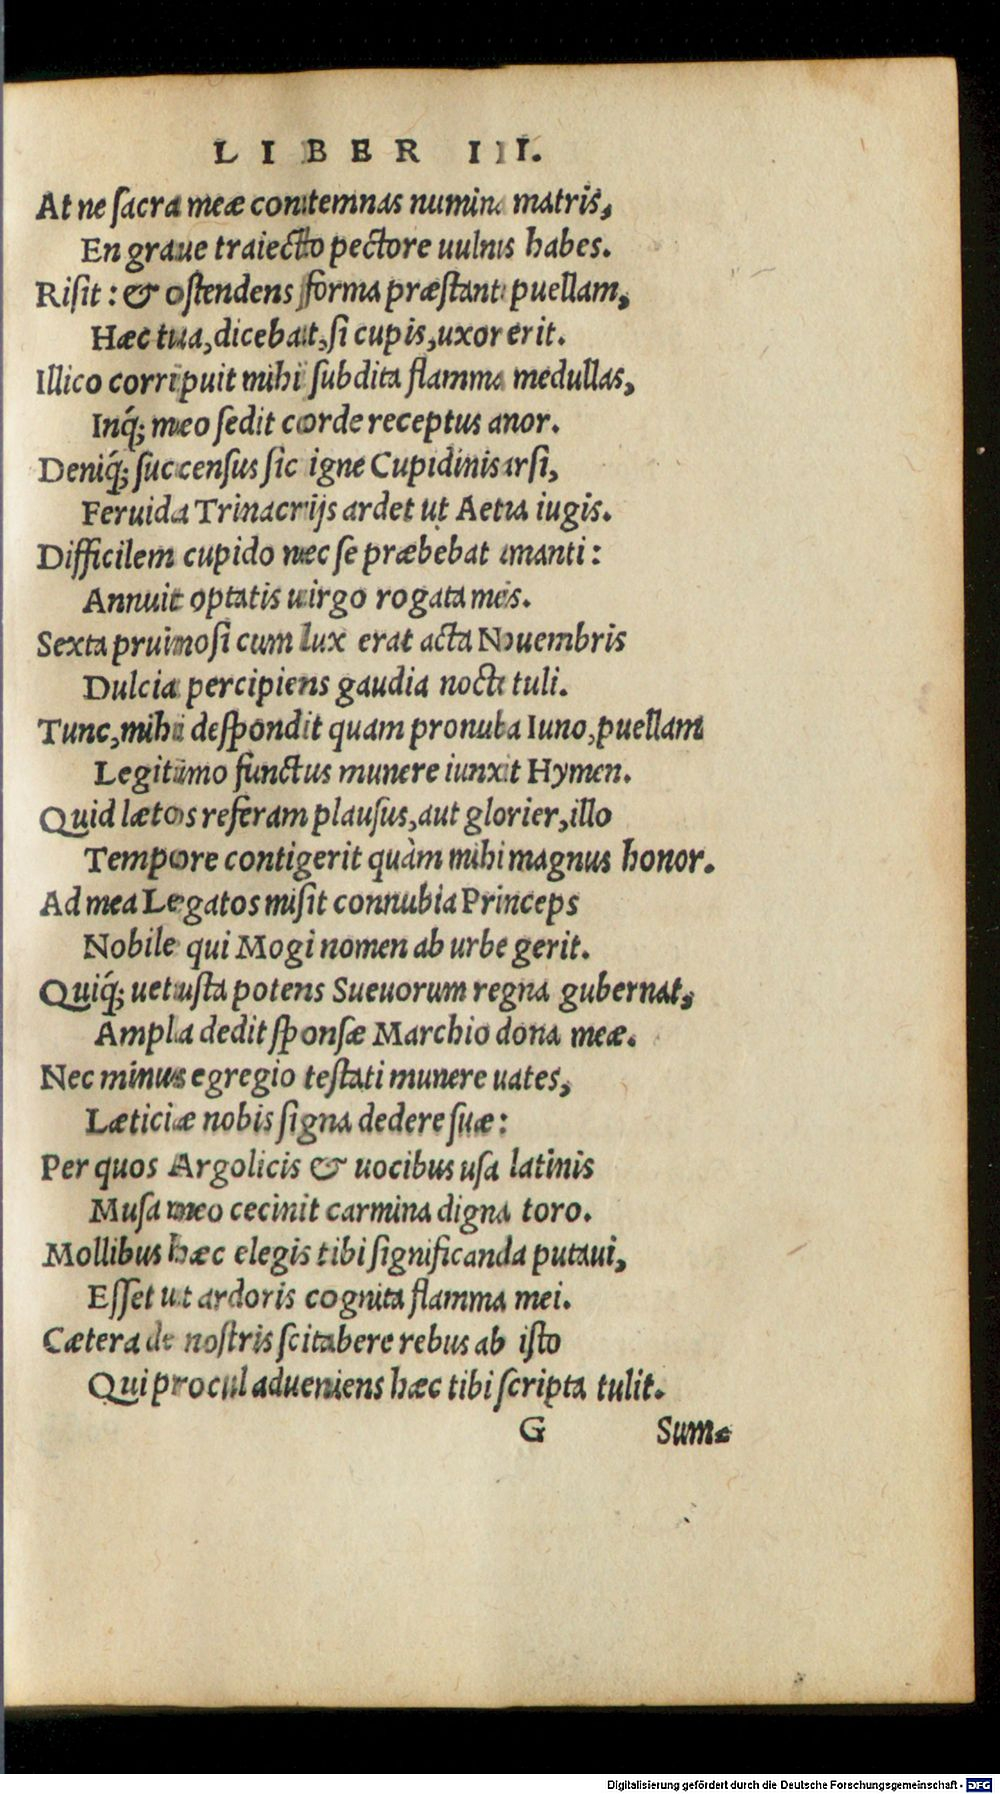 LIBER III.
At ne sacra meæ contemnas numina matris,
En graue traiecto pectore uulnus habes.
Risit: & ostendens forma præstante puellam,
Hæc tua, dicebat, si cupis, uxor erit.
Illico corripuit mihi subdita flamma medullas,
Inq́; meo sedit corde receptus amor.
Deniq́; succensus sic igne Cupidinis arsi,
Feruida Trinacrijs ardet ut Aetna iugis.
Difficilem cupido nec se præbebat amanti:
Annuit optatis uirgo rogata meis.
Sexta pruinosi cum lux erat acta Nouembris
Dulcia percipiens gaudia nocte tuli.
Tunc, mihi despondit quam pronuba Iuno, puellam
Legitimo functus munere iunxit Hymen.
Quid lætos referam plausus, aut glorier, illo
Tempore contigerit quàm mihi magnus honor.
Ad mea Legatos misit connubia Princeps
Nobile qui Mogi nomen ab urbe gerit.
Quiq́; uetusta potens Sueuorum regna gubernat,
Ampla dedit sponsæ Marchio dona meæ.
Nec minus egregio testati munere uates,
Læticiæ nobis signa dedere suæ:
Per quos Argolicis & uocibus usa latinis
Musa meo cecinit carmina digna toro.
Mollibus hæc elegis tibi significanda putaui,
Esset ut ardoris cognita flamma mei.
Cætera de nostris scitabere rebus ab isto
Qui procul adueniens hæc tibi scripta tulit.
G Sum-
Digitalisierung gefördert durch die Deutsche Forschungsgemeinschaft - DFG